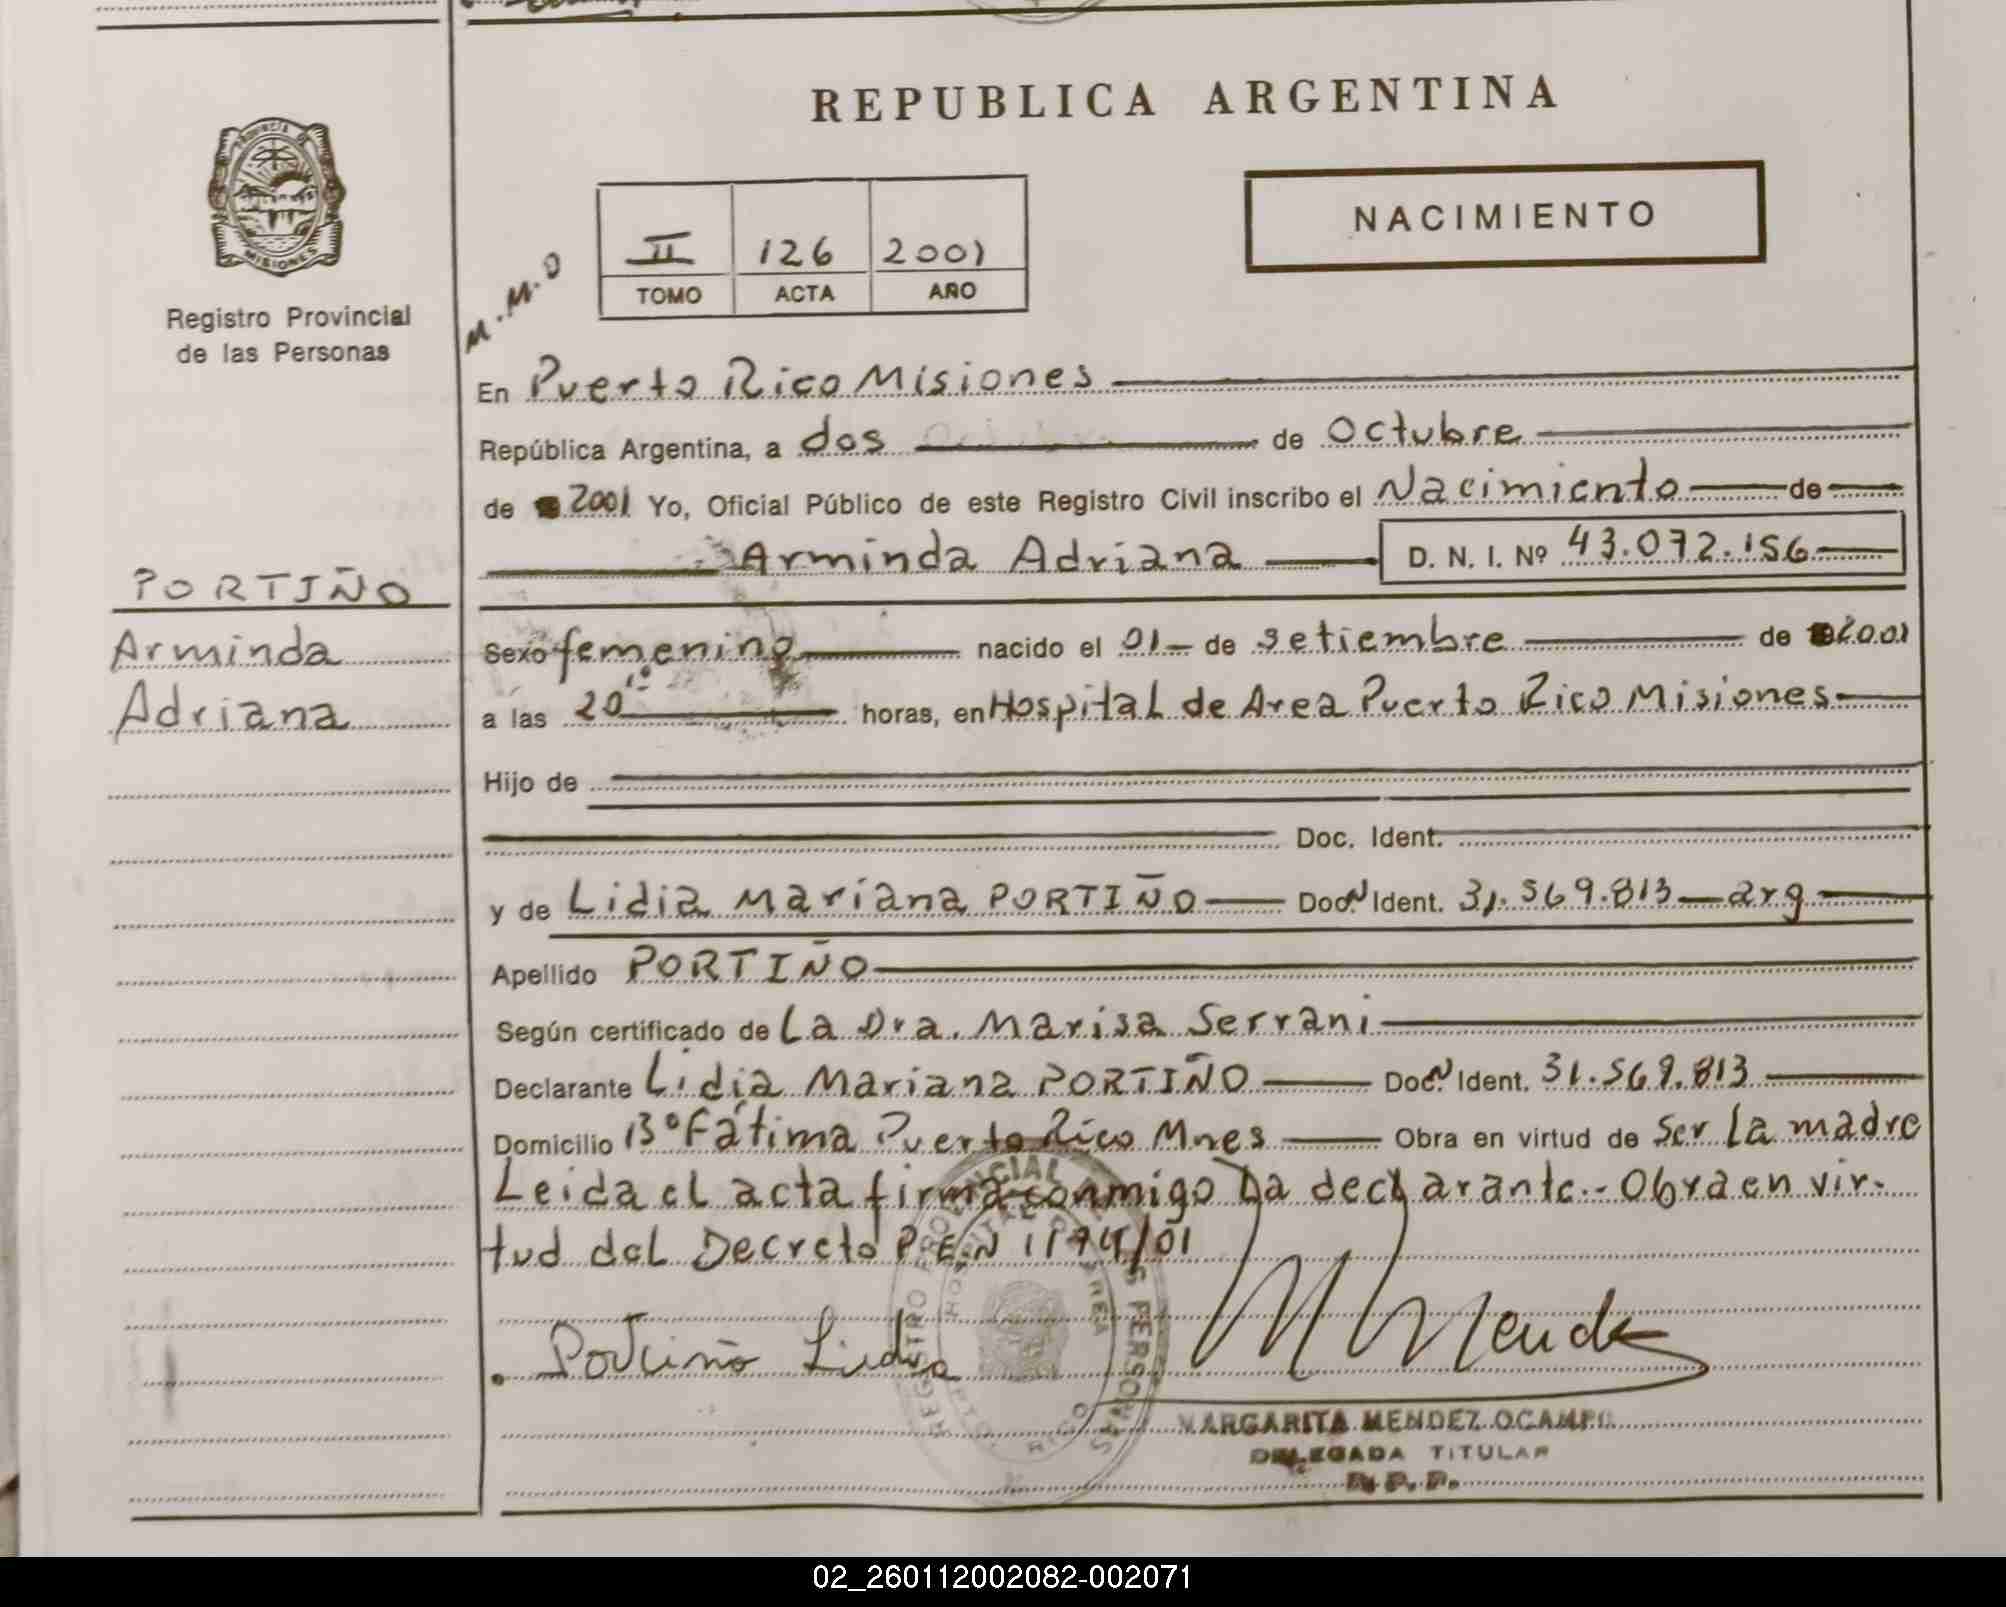 REPUBLICA ARGENTINA
PROVINCIA DE
MISIONES
Registro Provincial
de las Personas
M.M.O
II 126 2001
TOMO ACTA AÑO
NACIMIENTO
En Puerto Rico Misiones
República Argentina, a dos de Octubre
de 2001 Yo, Oficial Público de este Registro Civil inscribo el Nacimiento de
Arminda Adriana D. N. I. Nº 43.072.156
PORTIÑO
Arminda
Adriana
Sexo femenino nacido el 01 de setiembre de 2001
a las 20 horas, en Hospital de Area Puerto Rico Misiones
Hijo de
Doc. Ident.
y de Lidia Mariana PORTIÑO Doc. N Ident. 31.569.813 arg
Apellido PORTIÑO
Según certificado de La Dra. Marisa Serrani
Declarante Lidia Mariana PORTIÑO Doc. N Ident. 31.569.813
Domicilio Bº Fátima Puerto Rico Mnes Obra en virtud de Ser la madre
Leida el acta firma conmigo la declarante.- Obra en vir-
tud del Decreto P.E.N 1194/01
Portiño Lidia
M Mendez
REGISTRO PROVINCIAL DE LAS PERSONAS
HOSPITAL DE AREA
PTO. RICO
MARGARITA MENDEZ OCAMPO
DELEGADA TITULAR
R.P.P.
02_260112002082-002071